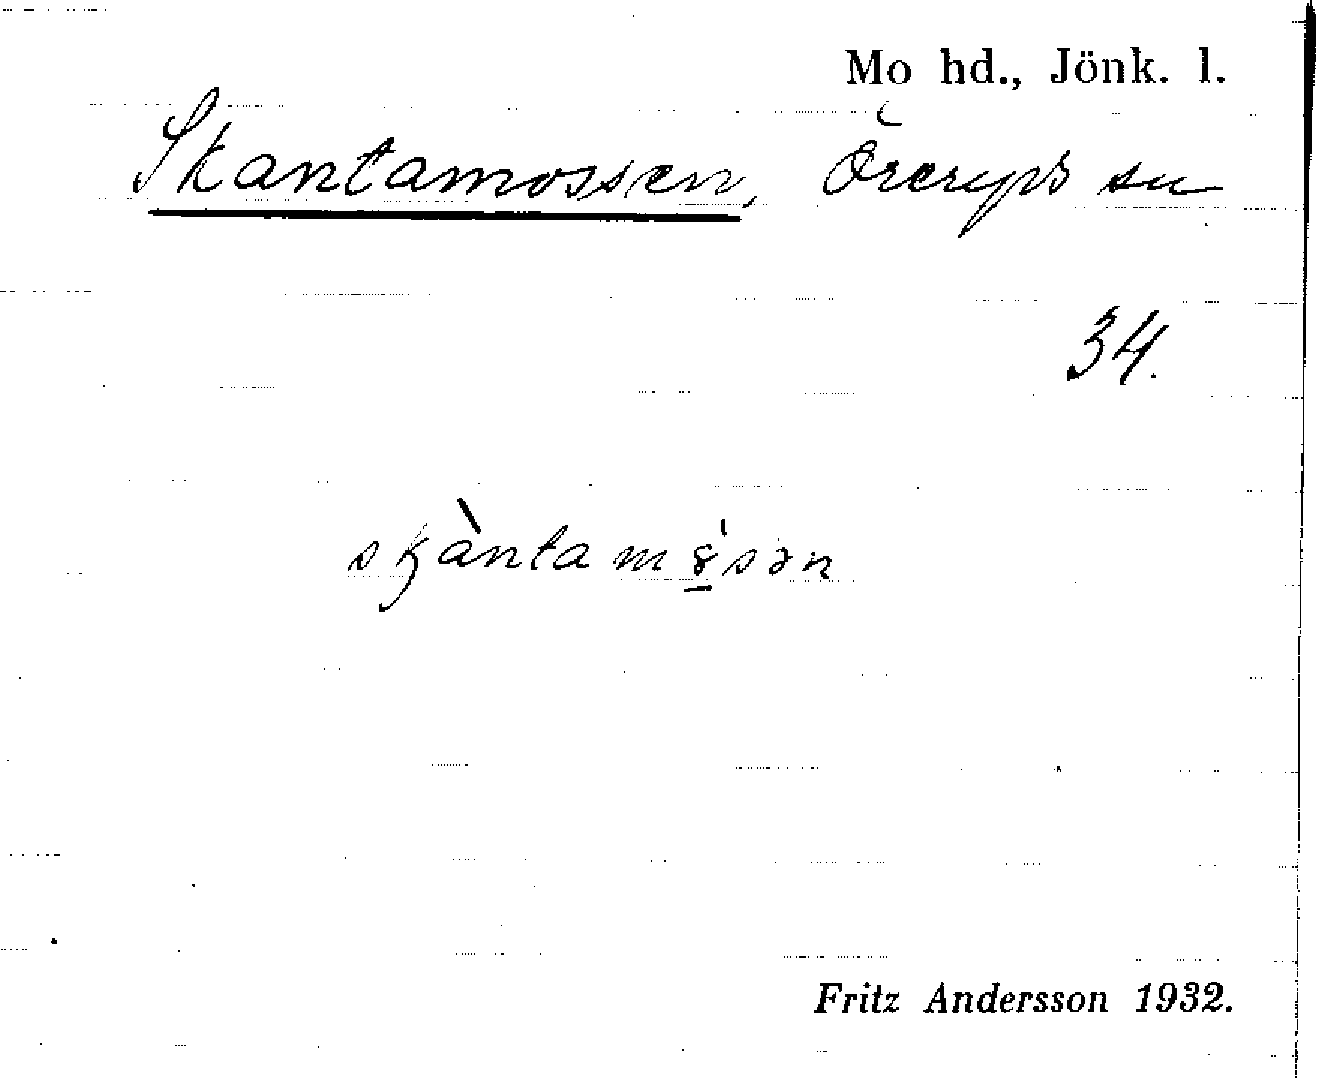 Mo hd., Jönk. l.
Skantamossen, Öreryds sn
34.
skàntamɷ̀sən
Fritz Andersson 1932.